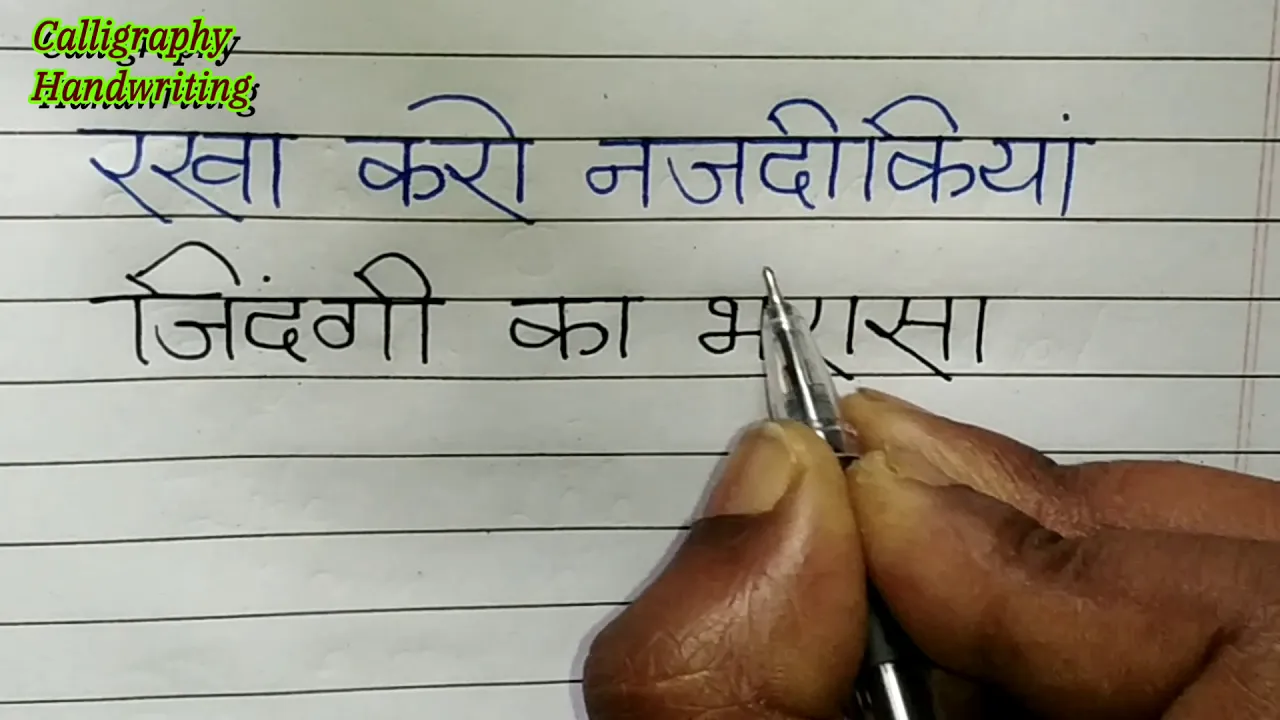 Calligraphy
Handwriting
रखा करो नजदीकियां
जिंदगी का भरासा